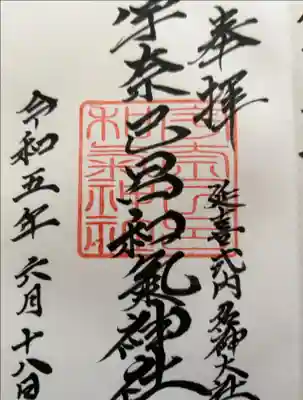 奉拝
延喜式内名神大社
宇奈己呂和氣神社
令和五年六月十八日